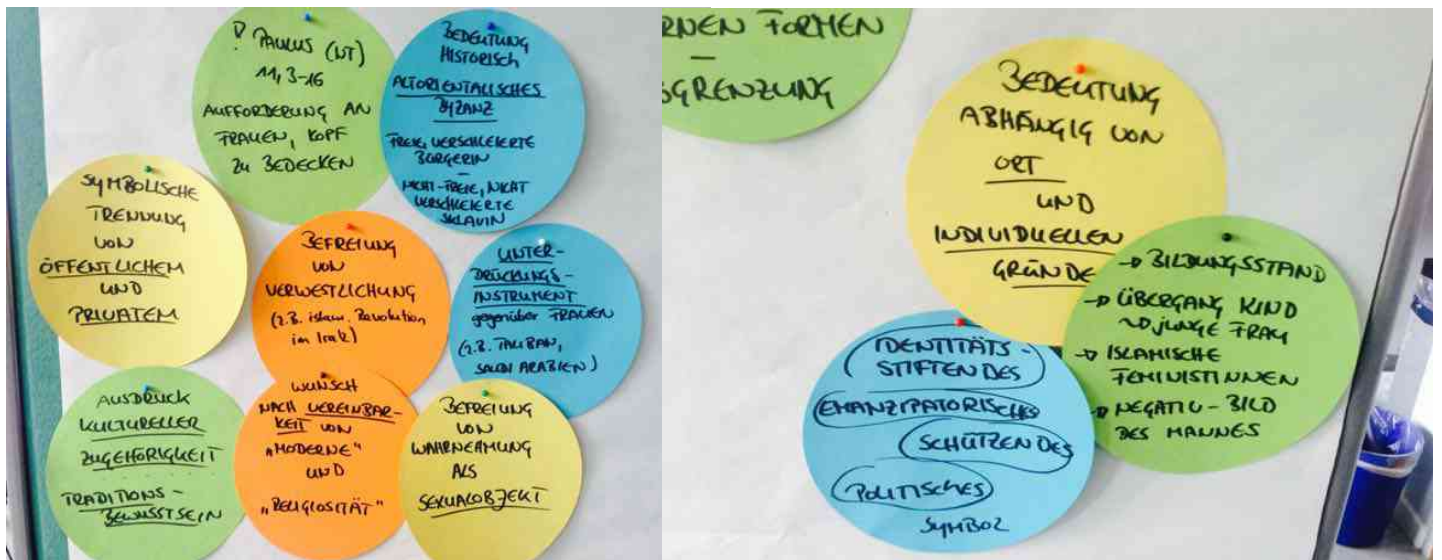 ? PAULUS (NT)
11, 3-16
AUFFORDERUNG AN
FRAUEN, KOPF
ZU BEDECKEN
BEDEUTUNG
HISTORISCH
ALTORIENTALISCHES
BYZANZ
FREIE, VERSCHLEIERTE
BÜRGERIN
–
NICHT-FREIE, NICHT
VERSCHLEIERTE
SKLAVIN
SYMBOLISCHE
TRENNUNG
VON
ÖFFENTLICHEM
UND
PRIVATEM
BEFREIUNG
VON
VERWESTLICHUNG
(z.B. islam. Revolution
im Irak)
UNTER-
DRÜCKUNGS-
INSTRUMENT
gegenüber FRAUEN
(z.B. TALIBAN,
SAUDI ARABIEN)
AUSDRUCK
KULTURELLER
ZUGEHÖRIGKEIT
TRADITIONS-
BEWUSSTSEIN
WUNSCH
NACH VEREINBAR-
KEIT VON
„MODERNE"
UND
„RELIGIOSITÄT"
BEFREIUNG
VON
WAHRNEHMUNG
ALS
SEXUALOBJEKT
RNEN FORMEN
–
GRENZUNG
BEDEUTUNG
ABHÄNGIG VON
ORT
UND
INDIVIDUELLEN
GRÜNDE
→ BILDUNGSSTAND
→ ÜBERGANG KIND
→ JUNGE FRAU
→ ISLAMISCHE
FEMINISTINNEN
→ NEGATIV-BILD
DES MANNES
IDENTITÄTS-
STIFTENDES
EMANZIPATORISCHES
SCHÜTZENDES
POLITISCHES
SYMBOL